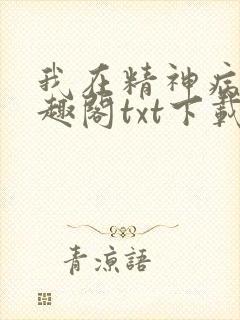 我在精神病
趣阁txt下载
青涼語